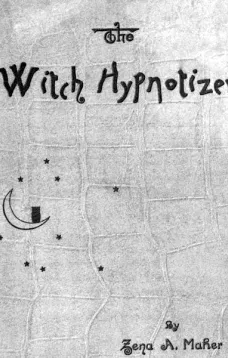 The
Witch Hypnotizer
By
Zena A. Maher